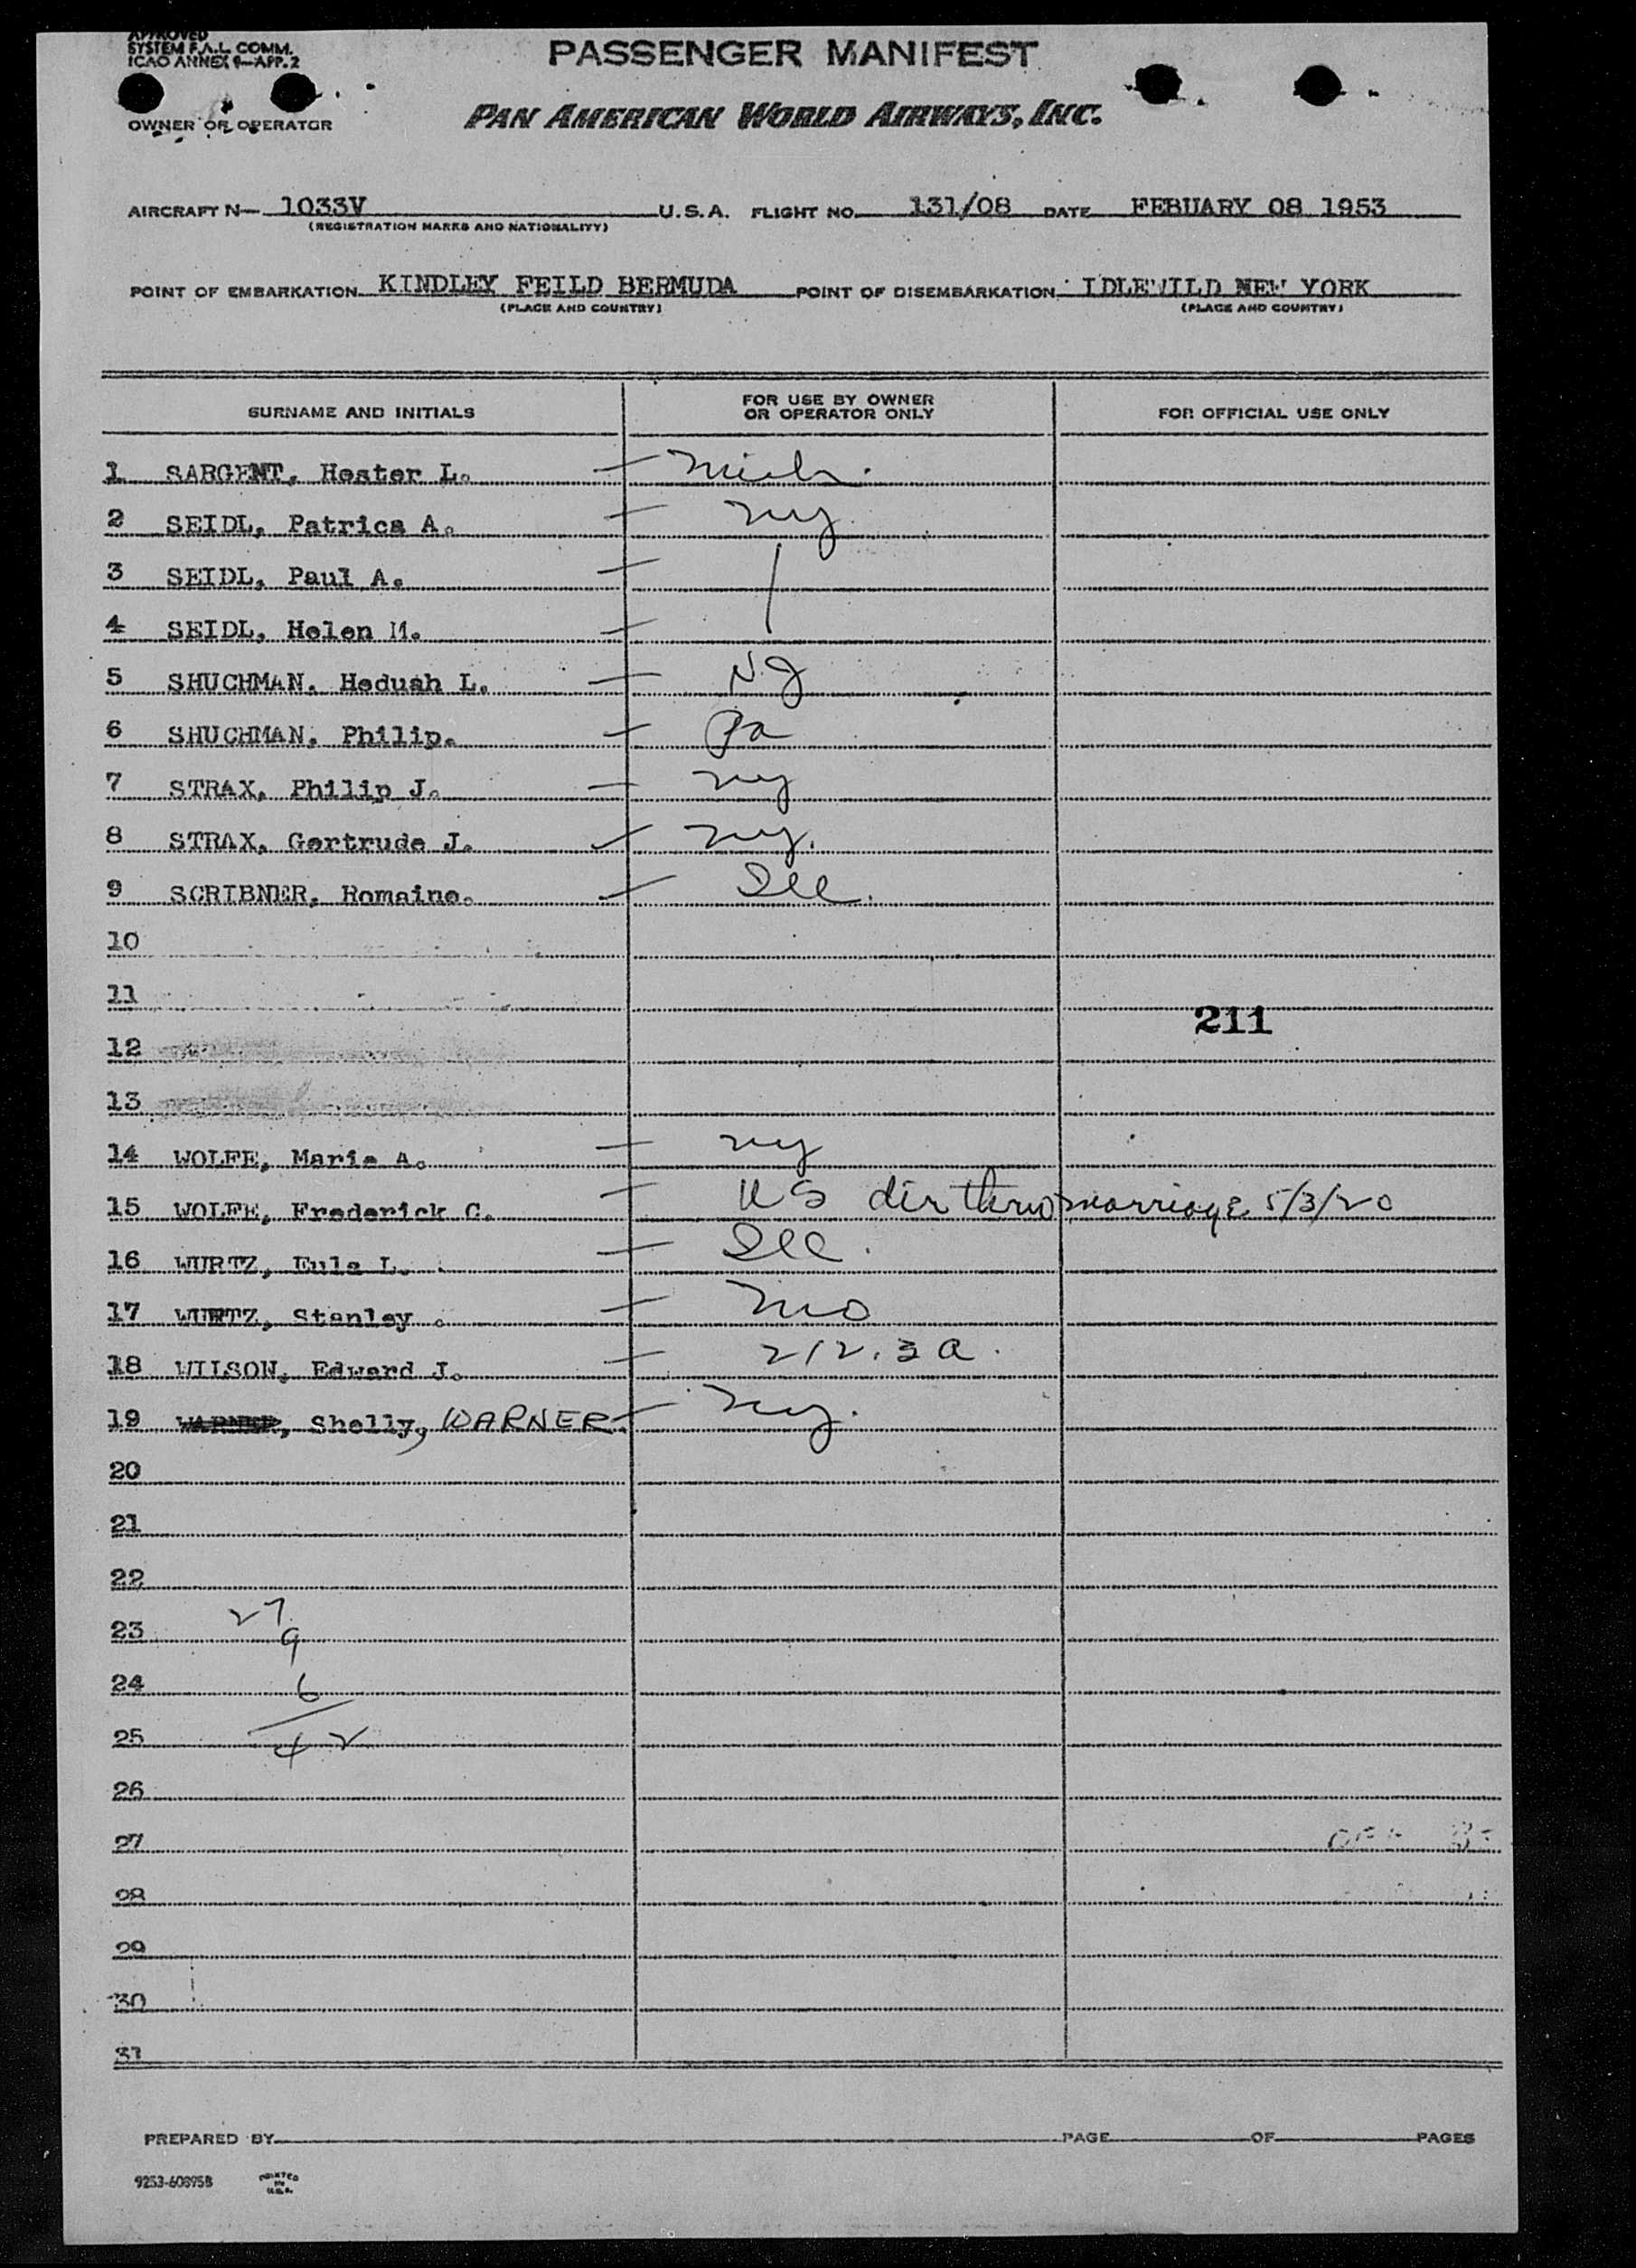 APPROVED
SYSTEM F.A.L. COMM.
ICAO ANNEX 9—APP. 2
PASSENGER MANIFEST
OWNER OR OPERATOR
PAN AMERICAN WORLD AIRWAYS, INC.
AIRCRAFT N— 1033V U.S.A. FLIGHT NO. 131/08 DATE FEBUARY 08 1953
(REGISTRATION MARKS AND NATIONALITY)
POINT OF EMBARKATION KINDLEY FEILD BERMUDA POINT OF DISEMBARKATION IDLEWILD NEW YORK
(PLACE AND COUNTRY) (PLACE AND COUNTRY)
SURNAME AND INITIALS FOR USE BY OWNER OR OPERATOR ONLY FOR OFFICIAL USE ONLY
1 SARGENT, Hester L. — Mich.
2 SEIDL, Patrica A. — NY
3 SEIDL, Paul A. —
4 SEIDL, Helen M. —
5 SHUCHMAN, Hedush L. — NJ
6 SHUCHMAN, Philip. — Pa
7 STRAX, Philip J. — NY
8 STRAX, Gertrude J. — NY.
9 SCRIBNER, Romaine. — Ill.
10
11
211
12
13
14 WOLFE, Marie A. — NY
15 WOLFE, Frederick C. — US der thru marriage 5/3/20
16 WURTZ, Eula L. — Ill.
17 WURTZ, Stanley . — Mo
18 WILSON, Edward J. — 212.3a.
19 WARNER, Shelly, WARNER — NY.
20
21
22
27
23
9
24
6
25
42
26
27
28
29
30
31
PREPARED BY PAGE OF PAGES
9253-60895B PRINTED IN U.S.A.